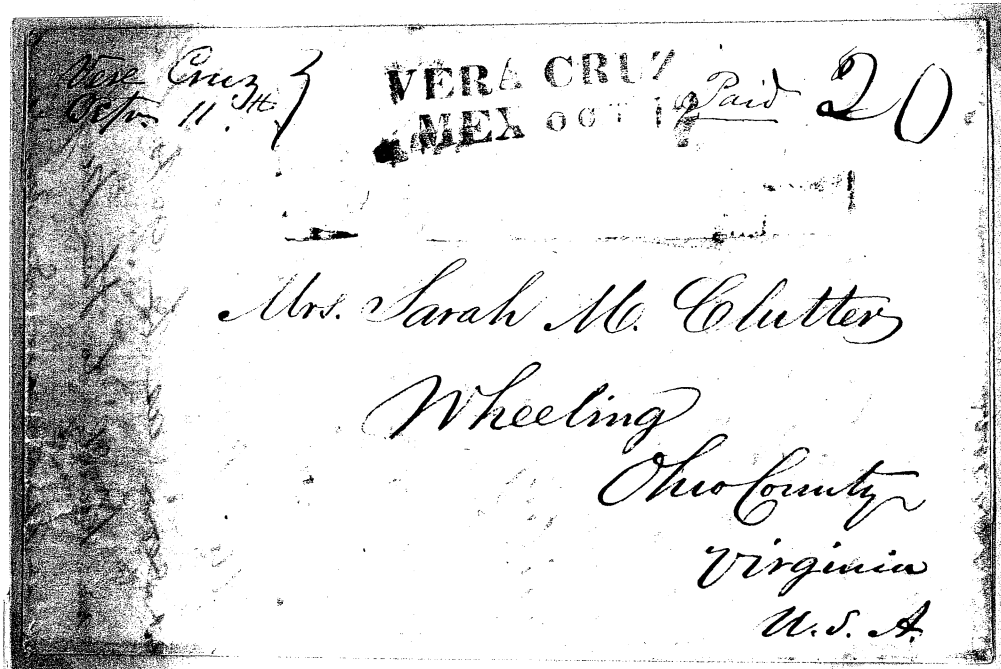 Vera Cruz
Octr. 11th
VERA CRUZ
MEX OCT 12
Paid 20
Mrs. Sarah M. Clutter
Wheeling
Ohio County
Virginia
U.S.A.